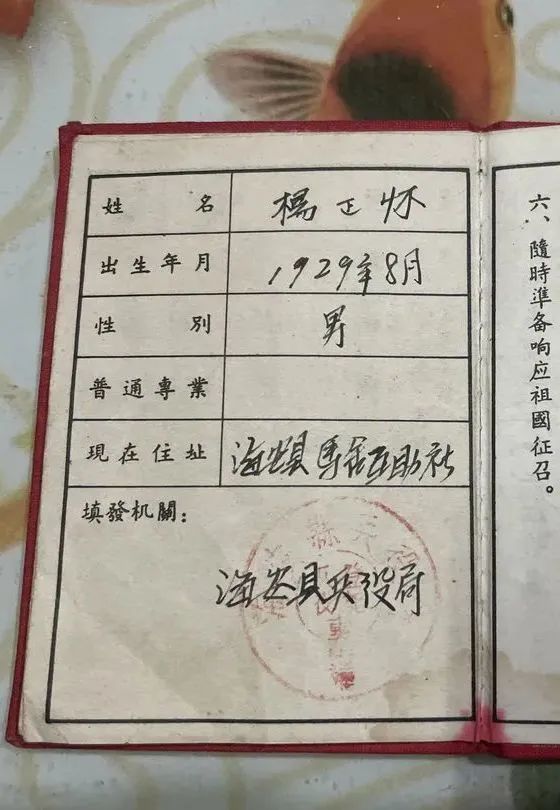 姓名 楊正怀
出生年月 1929年8月
性别 男
普通專業
現在住址 海炎县馬舍互助社
填發机關：
海炎县兵役局
六、隨時準备响应祖國征召。